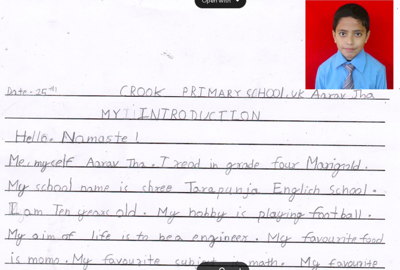 Date - 25th CROOK PRIMARY SCHOOL, UK Aarav Jha
MY INTRODUCTION
Hello. Namaste!
Me, myself Aarav Jha. I read in grade four Marigold.
My school name is shree Tarapunja English School.
I am Ten years old. My hobby is playing football.
My aim of life is to be a engineer. My favourite food
is momo. My favourite subject is math. My favourite